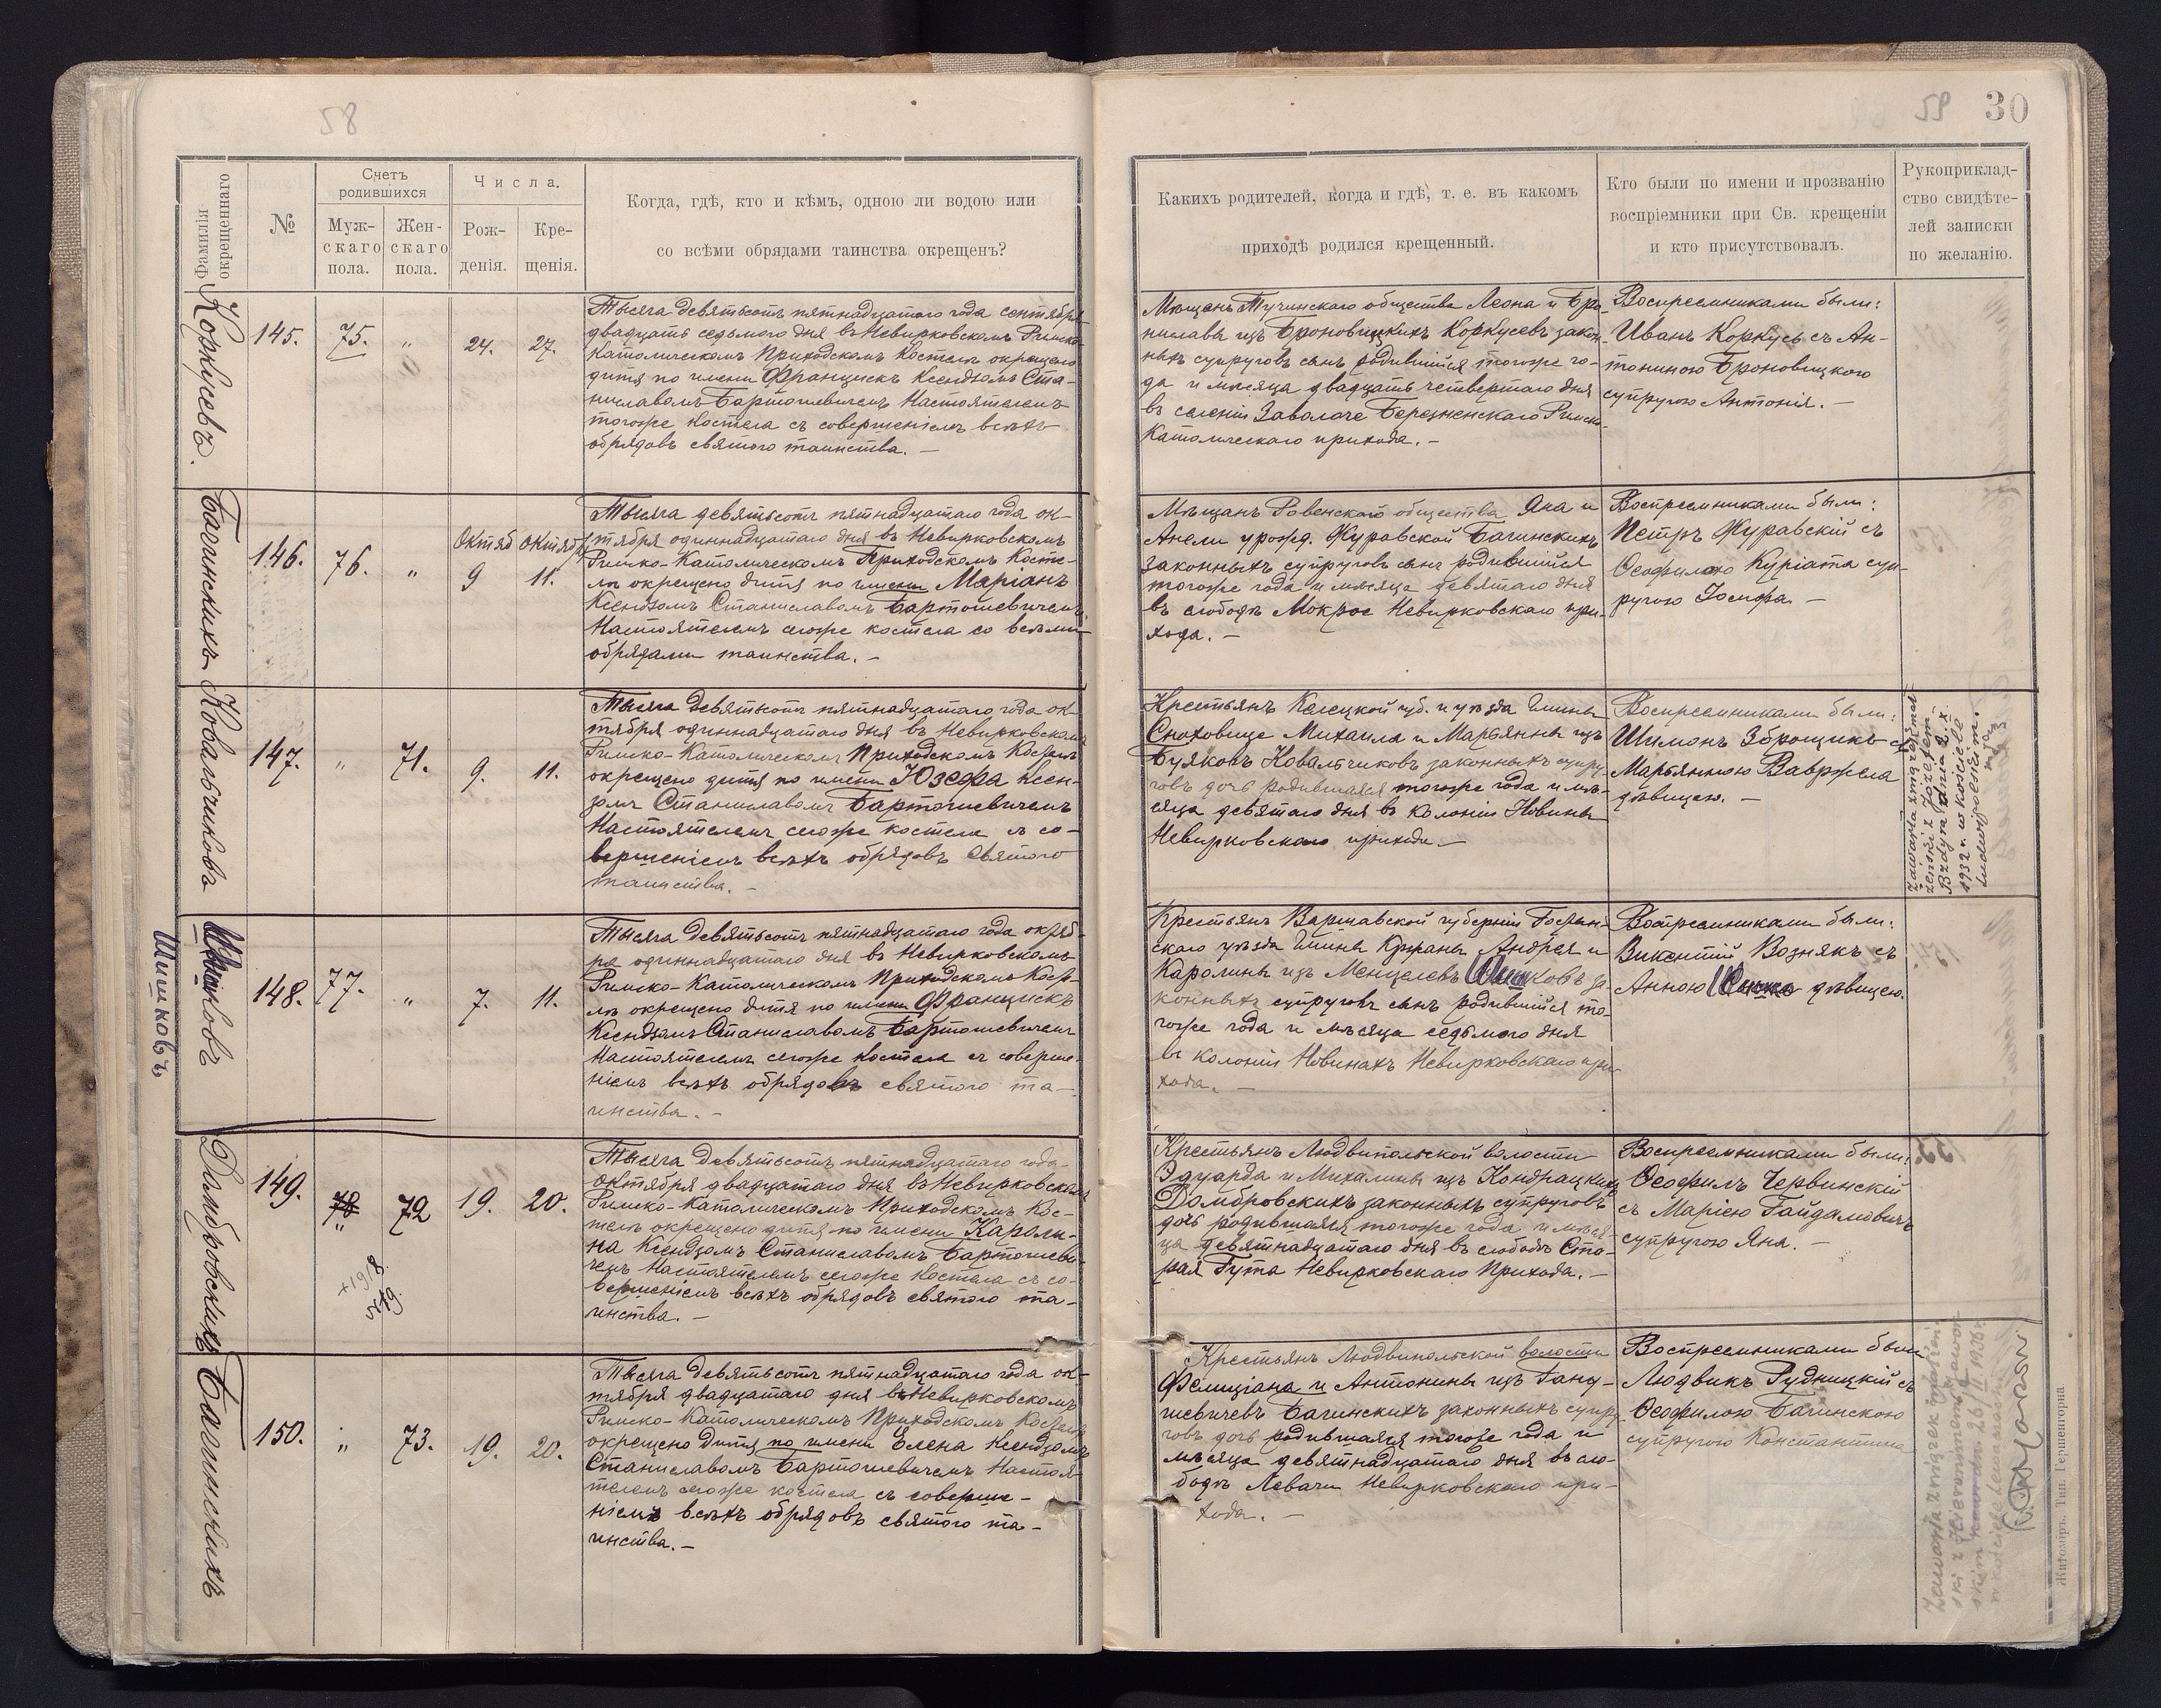 58
Фамилія окрещеннаго
№
Счетъ родившихся
Муж-
скаго
пола.
Жен-
скаго
пола.
Числа.
Рож-
денія.
Кре-
щенія.
Когда, гдѣ, кто и кѣмъ, одною ли водою или
со всѣми обрядами таинства окрещенъ?
Коркусевъ.
145.
75.
"
24.
27.
Тысяча девятьсотъ пятнадцатаго года сентября
двадцать седьмого дня въ Невирковскомъ Римско-
Католическомъ Приходскомъ Костелѣ окрещено
дитя по имени Францискъ Ксендзомъ Ста-
ниславомъ Бартошевичемъ Настоятелемъ
тогоже костела съ совершеніемъ всѣхъ
обрядовъ святого таинства. —
Багинскихъ
146.
76.
"
Октяб
9
Октябр
11.
Тысяча девятьсотъ пятнадцатаго года ок-
тября одиннадцатаго дня въ Невирковскомъ
Римско-Католическомъ Приходскомъ Косте-
лѣ окрещено дитя по имени Маріанъ
Ксендзомъ Станиславомъ Бартошевичемъ
Настоятелемъ сегоже костела со всѣми
обрядами таинства. —
Ковальчикова
147.
"
71.
9.
11.
Тысяча девятьсотъ пятнадцатаго года ок-
тября одиннадцатаго дня въ Невирковскомъ
Римско-Католическомъ Приходскомъ Костелѣ
окрещено дитя по имени Юзефа Ксен-
дзомъ Станиславомъ Бартошевичемъ
Настоятелемъ сегоже костела съ со-
вершеніемъ всѣхъ обрядовъ святого
таинства. —
Шишковъ
Шишковъ
148.
77.
"
7.
11.
Тысяча девятьсотъ пятнадцатаго года октяб-
ря одиннадцатаго дня въ Невирковскомъ
Римско-Католическомъ Приходскомъ Косте-
лѣ окрещено дитя по имени Францискъ
Ксендзомъ Станиславомъ Бартошевичемъ
Настоятелемъ сегоже костела съ соверше-
ніемъ всѣхъ обрядовъ святого та-
инства. —
Домбровскихъ
149.
78
"
72
19.
20.
Тысяча девятьсотъ пятнадцатаго года
октября двадцатаго дня въ Невирковскомъ
Римско-Католическомъ Приходскомъ Кос-
телѣ окрещено дитя по имени Кароли-
на Ксендзомъ Станиславомъ Бартошеви-
чемъ Настоятелемъ сегоже костела съ со-
вершеніемъ всѣхъ обрядовъ святого та-
инства. —
Багинскихъ
150.
"
73.
19.
20.
Тысяча девятьсотъ пятнадцатаго года ок-
тября двадцатаго дня въ Невирковскомъ
Римско-Католическомъ Приходскомъ Костелѣ
окрещено дитя по имени Елена Ксендзомъ
Станиславомъ Бартошевичемъ Настоя-
телемъ сегоже костела съ соверше-
ніемъ всѣхъ обрядовъ святого та-
инства. —
59 30
Какихъ родителей, когда и гдѣ, т. е. въ какомъ
приходѣ родился крещенный.
Кто были по имени и прозванію
воспріемники при Св. крещеніи
и кто присутствовалъ.
Рукоприклад-
ство свидѣте-
лей записки
по желанію.
Мѣщанъ Тучинскаго общества Леона и Бро-
ниславы изъ Броновицкихъ Коркусевъ закон-
ныхъ супруговъ сынъ родившійся тогоже го-
да и мѣсяца двадцать четвертаго дня
въ селеніи Заволоче Березненскаго Римско-
Католическаго прихода. —
Воспреемниками были:
Иванъ Коркусь съ Ан-
тониною Броновицкого
супругою Антонія. —
Мѣщанъ Ровенского общества Яна и
Анели урожд. Журавской Багинскихъ
законныхъ супруговъ сынъ родившійся
тогоже года и мѣсяца девятаго дня
въ слободѣ Мокрое Невирковскаго при-
хода. —
Воспреемниками были:
Петръ Журавскій съ
Ѳеофилою Куріата суп-
ругою Іосифа. —
Крестьянъ Келецкой губ. и уѣзда гмины
Сноховице Михаила и Марьянны изъ
Буяковъ Ковальчиковъ законныхъ супру-
говъ дочь родившаяся тогоже года и мѣ-
сяца девятаго дня въ колоніи Новины
Невирковскаго прихода —
Воспреемниками были:
Шимонъ Зброщикъ съ
Марьянною Вавржела
дѣвицею. —
Zawarła związek małż-
żeński z Józefem
Bzdyra dnia 2. X.
1932 r. w kościele
Ludwipolskim.
Крестьянъ Варшавской губерніи Гостын-
скаго уѣзда гмины Андрея и
Каролины изъ Менцелевъ Шишковъ за-
конныхъ супруговъ сынъ родившійся то-
гоже года и мѣсяца седьмого дня
въ колоніи Новинахъ Невирковскаго при-
хода. —
Воспреемниками были:
Викентій Вознякъ съ
Анною дѣвицею.
Крестьянъ Людвипольской волости
Эдуарда и Михалины изъ Кондрацкихъ
Домбровскихъ законныхъ супруговъ
дочь родившаяся тогоже года и мѣся-
ца девятнадцатаго дня въ слободѣ Ста-
рая Гута Невирковскаго Прихода. —
Воспреемниками были:
Ѳеофилъ Червинскій
съ Маріею Гайдамовичъ
супругою Яна. —
Крестьянъ Людвипольской волости
Фелиціана и Антонины изъ Гану-
шевичевъ Багинскихъ законныхъ супру-
говъ дочь родившаяся тогоже года и
мѣсяца девятнадцатаго дня въ сло-
бодѣ Левачи Невирковскаго при-
хода. —
Воспреемниками были
Людвикъ Рудницкій съ
Ѳеофилою Багинскою
супругою Константина
Zawarła związek małżeń-
ski z Hieronimem
Житоміръ. Тип. Гершенгорна